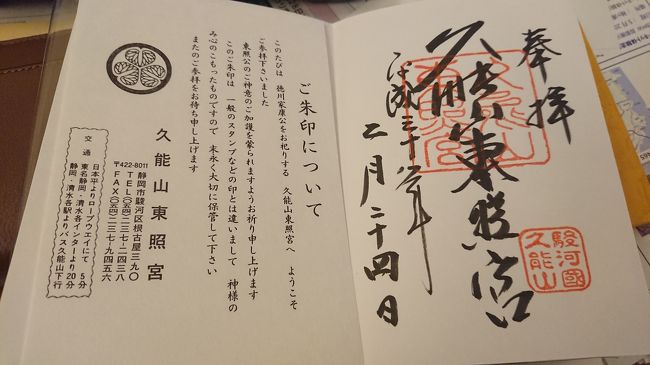 奉拝
久能山東照宮
平成三十年
二月二十四日
駿河國
久能山
ご朱印について
このたびは　徳川家康公をお祀りする　久能山東照宮へ　ようこそ
ご参拝下さいました
東照公のご神意のご加護を蒙られますようお祈り申し上げます
このご朱印は　一般のスタンプなどの印とは違いまして　神様の
み心のこもったものですので　末永く大切に保管して下さい
またのご参拝をお待ち申し上げます
久能山東照宮
〒422-8011　静岡市駿河区根古屋三九〇
TEL(〇五四)二三七-二四三八
FAX(〇五四)二三七-九四五六
交通
日本平よりロープウエイにて　5分
東名静岡・清水各インターより20分
静岡・清水各駅よりバス久能山下行